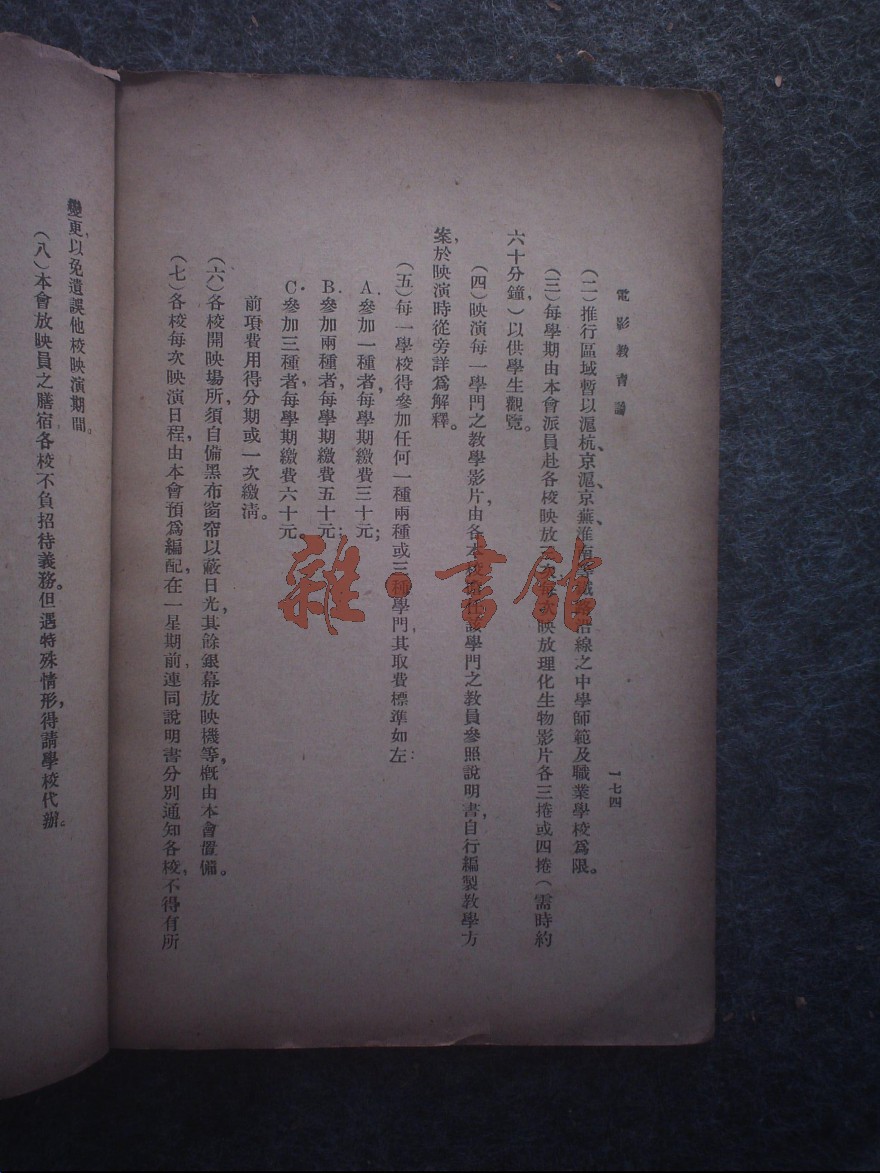 電影教育論
一七四
(二)推行區域暫以滬杭、京滬、京蕪、淮南沿線之中學師範及職業學校爲限。
(三)每學期由本會派員赴各校映放映放理化生物影片各三捲或四捲(需時約
六十分鐘,)以供學生觀覽。
(四)映演每一學門之敎學影片,由各本該學門之敎員參照說明書,自行編製敎學方
案,於映演時從旁詳爲解釋。
(五)每一學校得參加任何一種兩種或三種學門,其取費標準如左:
A.參加一種者,每學期繳費三十元;
B.參加兩種者,每學期繳費五十元;
C.參加三種者,每學期繳費六十元
前項費用得分期或一次繳淸。
(六)各校開映場所,須自備黑布窗帘以蔽日光,其餘銀幕放映機等,槪由本會置備。
(七)各校每次映演日程,由本會預爲編配,在一星期前,連同說明書分別通知各校,不得有所
變更,以免遺誤他校映演期間。
(八)本會放映員之膳宿各校不負招待義務。但遇特殊情形,得請學校代辦。
雜·書館